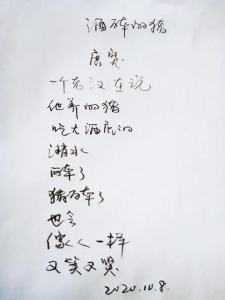 酒醉的猪
唐突
一个老汉在说
他养的猪
吃大酒店的
潲水
醉了
猪醉了
也会
像人一样
又笑又哭
2020.10.8.